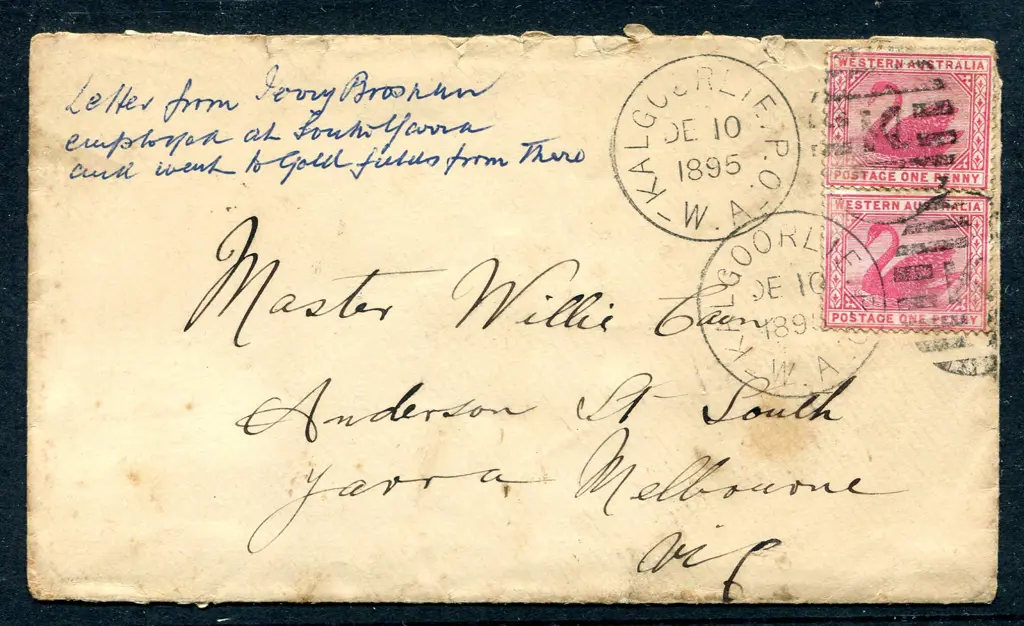 Letter from Jerry
employed at South Yarra
and went to Gold fields from There
KALGOORLIE. P.O.
DE 10
1895
W.A.
WESTERN AUSTRALIA
POSTAGE ONE PENNY
WESTERN AUSTRALIA
POSTAGE ONE PENNY
KALGOORLIE
DE 10
1895
W.A.
Master Willie
Anderson St South
Yarra Melbourne
Vic